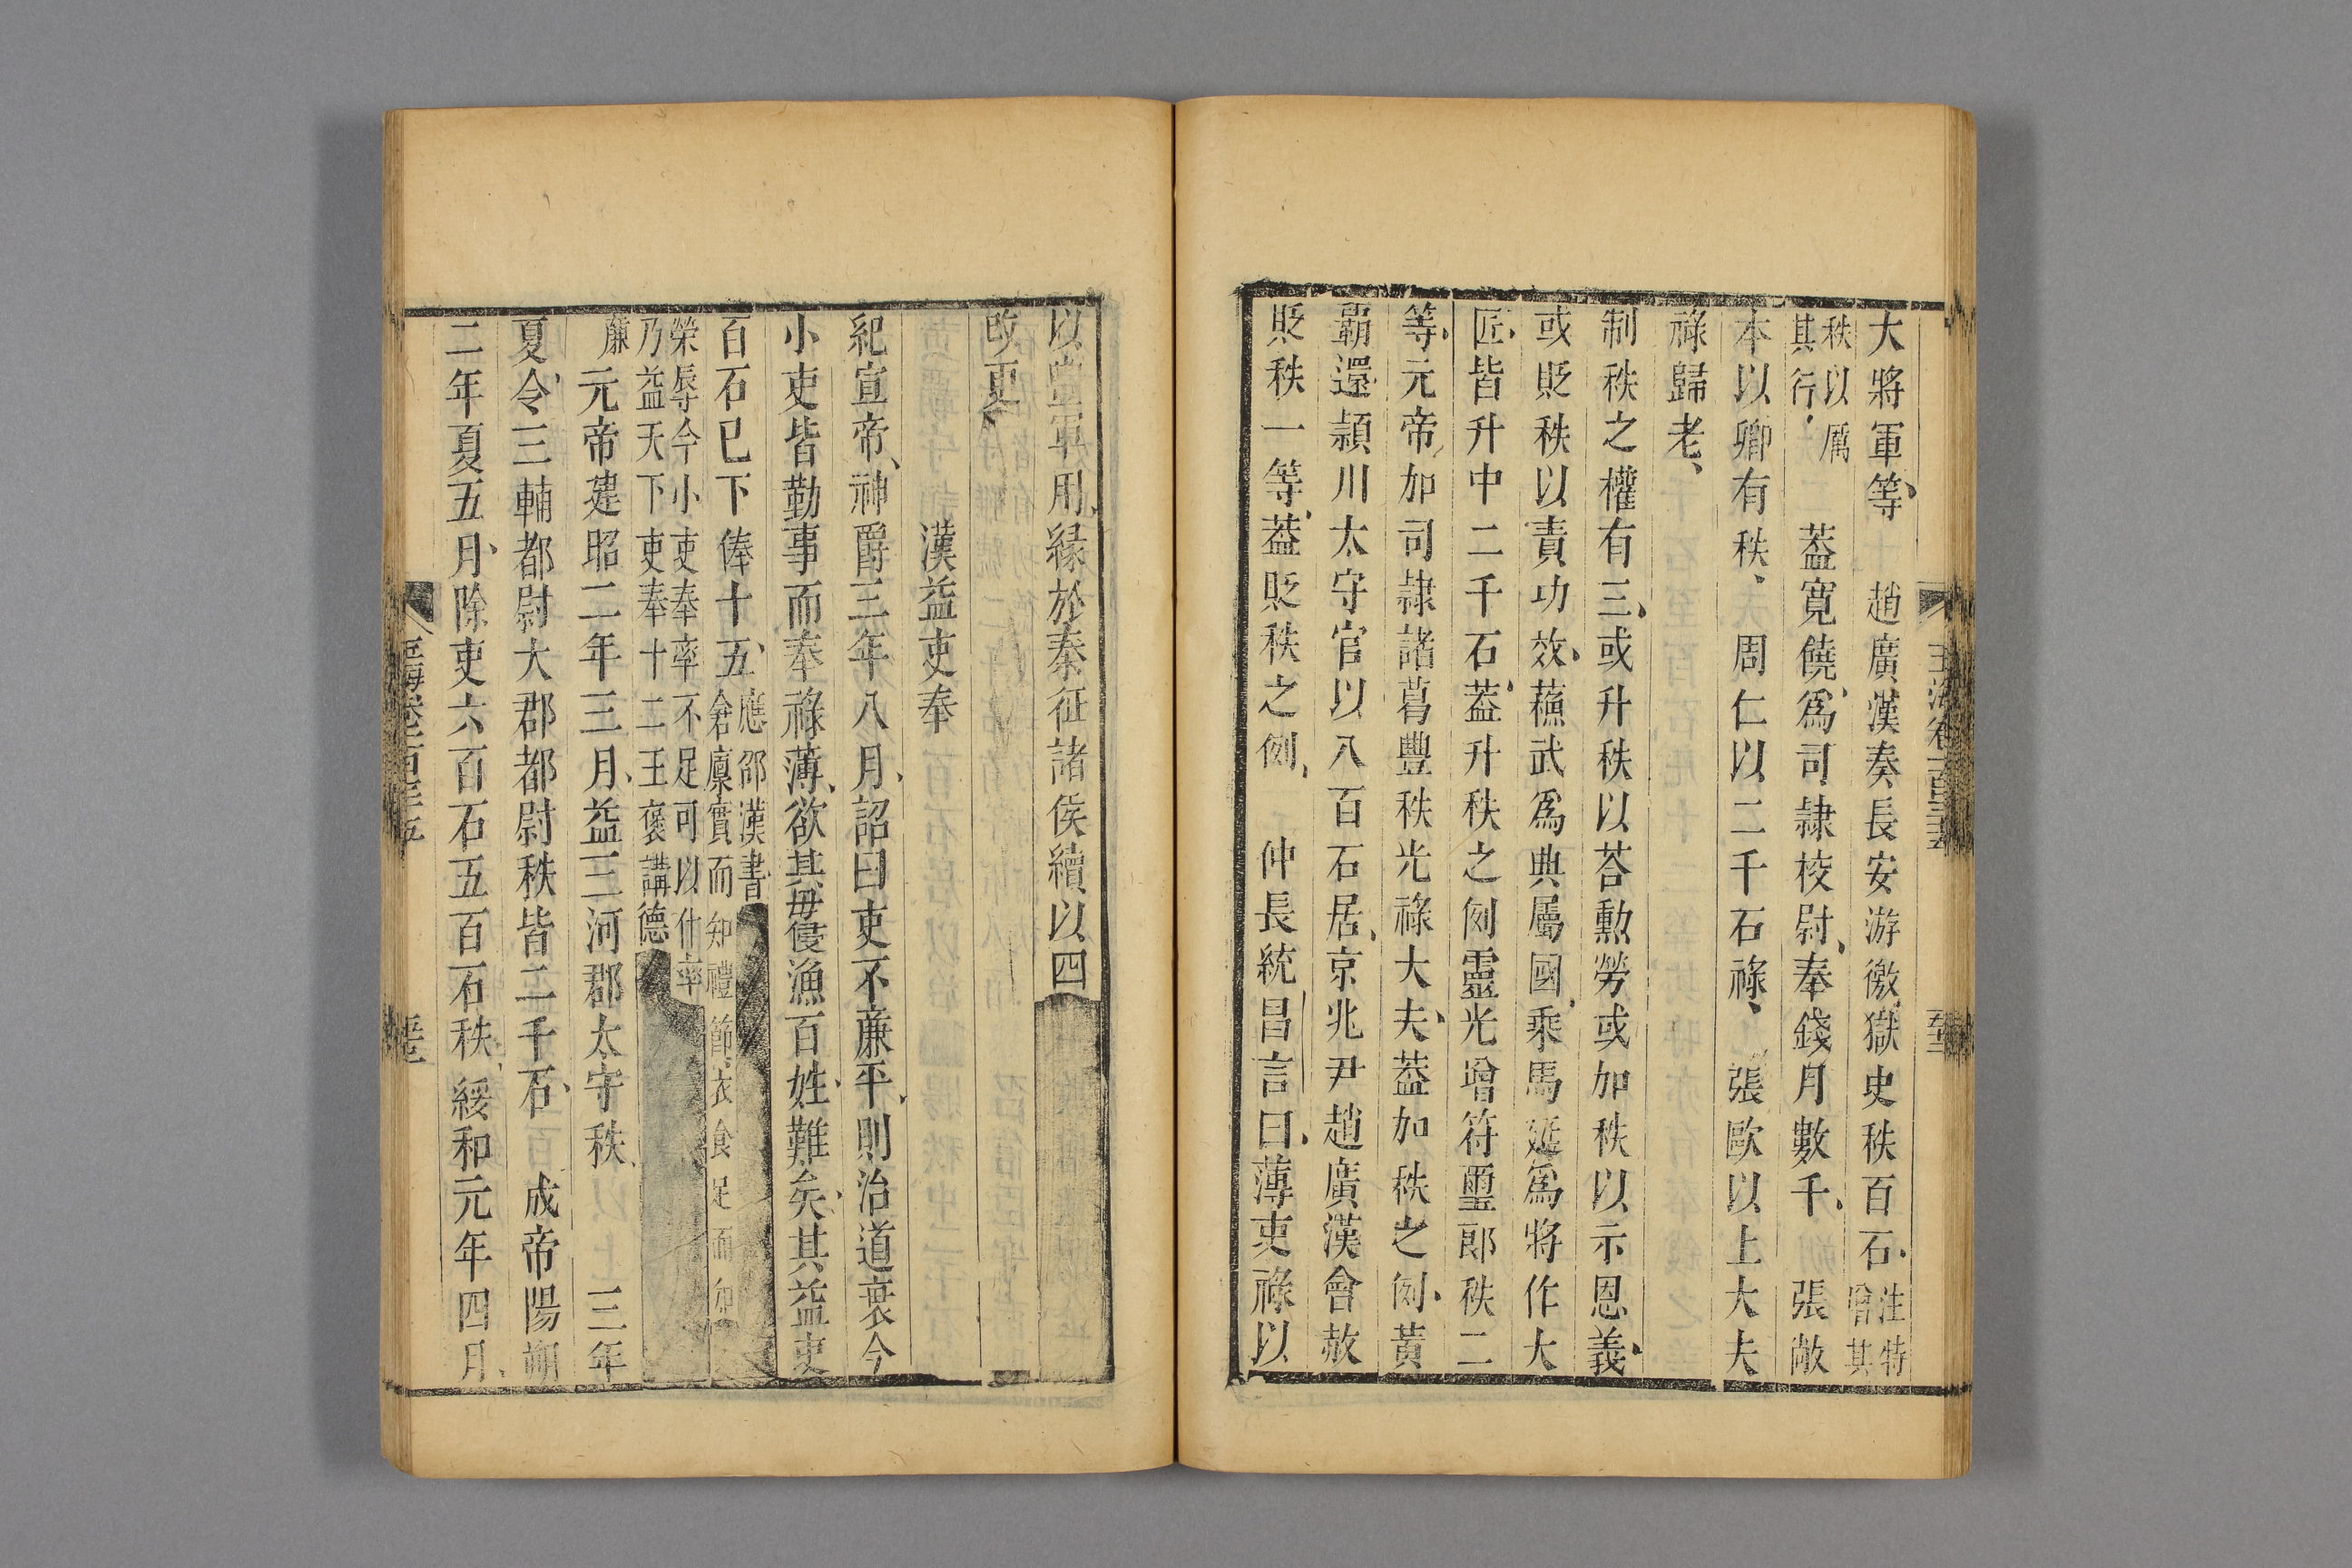 大將軍等、　趙廣漢奏長安游徼、獄史秩百石、注特增其
秩以厲其行、　蓋寬饒、爲司隷校尉、奉錢月數千、　張敞
本以卿有秩、　周仁以二千石祿、　張歐以上大夫
祿歸老、
制秩之權有三、或升秩以荅勲勞或加秩以示恩義、
或貶秩以責功效、蘓武爲典屬國、乘馬延爲將作大
匠、皆升中二千石、葢升秩之例靈光增符璽郎秩二
等、元帝加司隷諸葛豐秩光祿大夫、葢加秩之例、黃
霸還潁川太守官以八百石居、京兆尹趙廣漢會赦
貶秩一等、葢貶秩之例、　仲長統昌言曰、薄吏祿以
以豊軍用、緣於秦征諸侯續以四
改更
漢益吏奉
紀宣帝、神爵三年八月、詔曰吏不亷平、則治道衰今
小吏皆勤事而奉祿薄、欲其毋侵漁百姓、難矣、其益吏
百石已下俸十五、應邵漢書倉廪實而知禮節、衣食足而知
榮辱今小吏奉率不足可以什率乃益天下吏奉十二王褒講德
亷　元帝建昭二年三月、益三河郡太守秩、　三年
夏、令三輔都尉大郡都尉秩皆二千石、　成帝陽朔
二年夏五月、除吏六百石五百石秩、綏和元年四月、